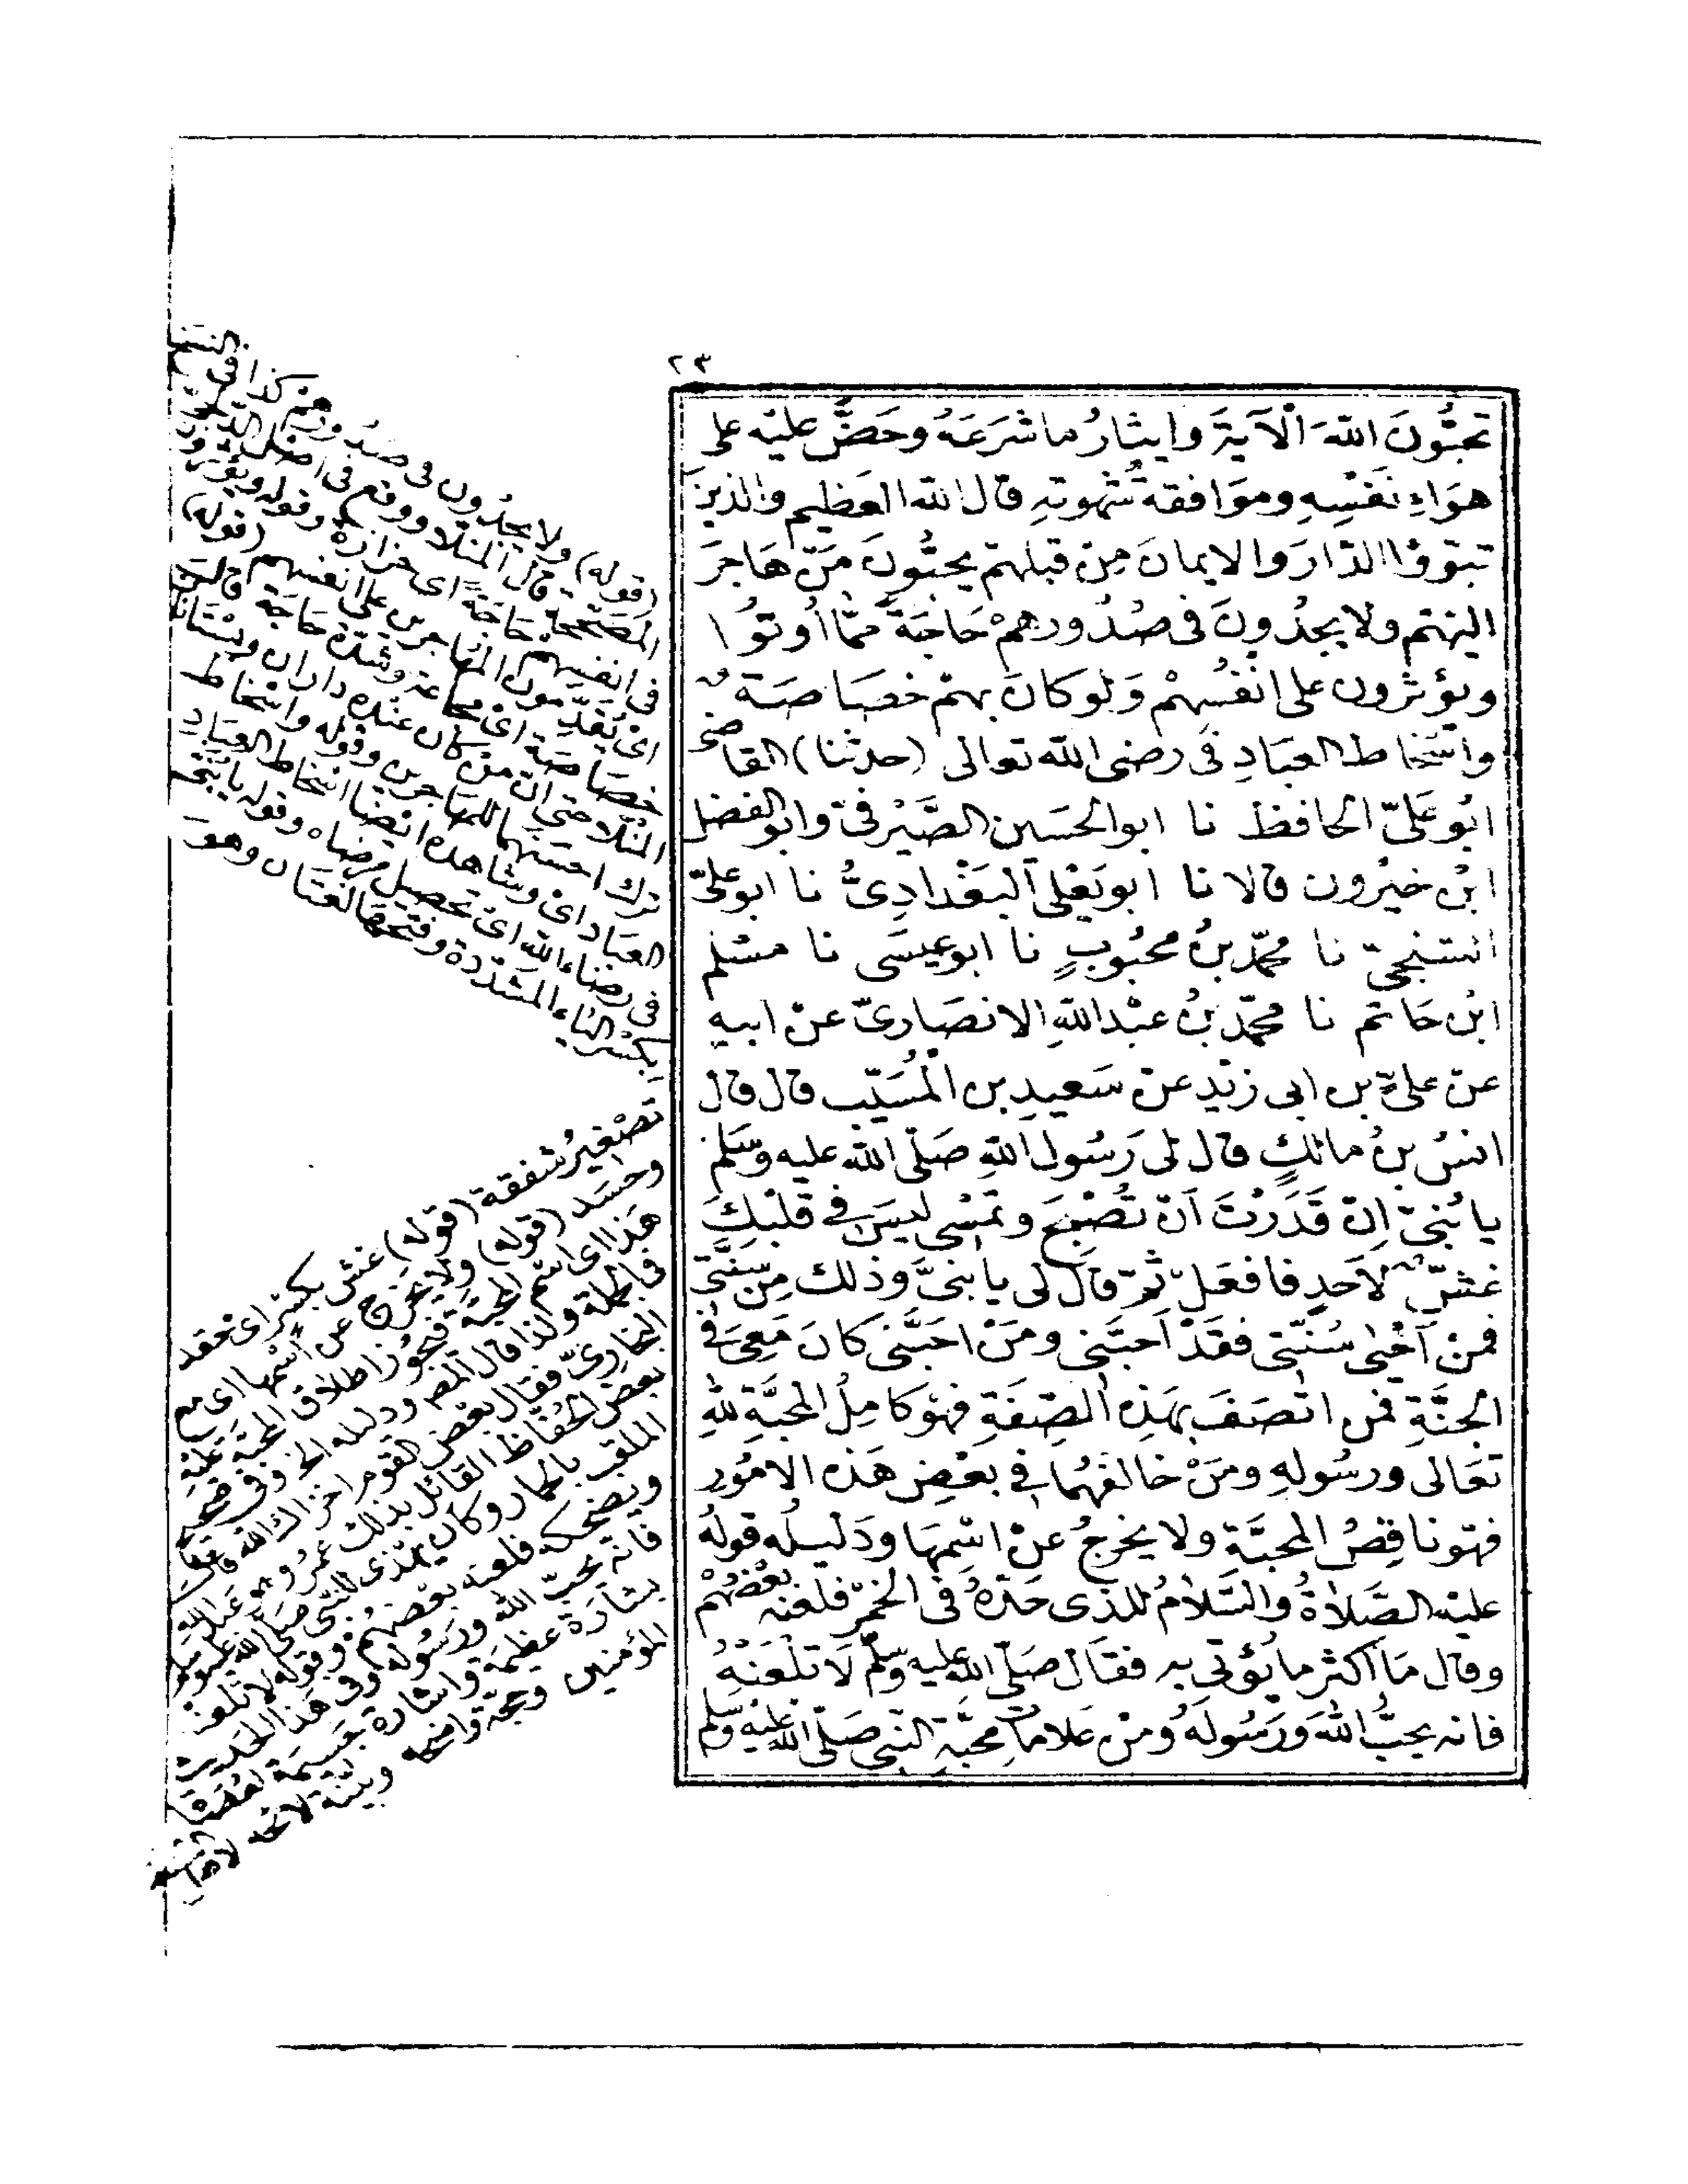 ٢٣
تحبُّونَ اللهَ الْآيَةَ وإيثارُ ما شَرَعَهُ وحَضَّ عليْه على
هوَاءِ نَفْسِهِ وموَافقةِ شهوتِهِ قال الله العَظِيم والذينَ
تبوّؤا الدّارَ والايمانَ مِنْ قبلهمْ يحبُّونَ مَنْ هَاجَرَ
اليْهِمْ ولا يجدُونَ فى صُدُورِهمْ حَاجَةً مِمَّا أُوتوُا
ويؤثرون على انْفُسِهِمْ وَلو كانَ بهمْ خصَاصَة
واسْخاط العِبَادِ فى رضى الله تعالى (حدثنا) القاضى
ابُو عَلىّ الحافظ نا ابو الحسَين الصَّيْرفىّ وابو الفضل
ابْن خيْرون قالا نا ابو يَعْلى البَغْدادِىُّ نا ابو علىّ
السّنجىّ نا محمّد بنُ محبُوبٍ نا ابو عيسَى نا مسْلم
ابْن حَاتم نا محمّد بنُ عبْد اللهِ الانصَارىّ عنْ ابيهِ
عنْ علىّ بن ابى زيْدٍ عنْ سَعيدِ بن الْمُسَيّب قال قال
انسُ بنُ مالكٍ قال لى رَسُول اللهِ صَلّى الله عليه وسَلّم
يا بُنىّ اِنْ قَدَرْتَ اَنْ تُصْبحَ وتمْسى ليسَ فى قلبكَ
غشّ لاَحدٍ فافعَلْ ثمّ قال لى يا بنىَّ وذلك مِنْ سنَّتى
فمنْ اَحْيٰى سُنّتى فقَدْ اَحبَّنى ومَنْ احَبَّنى كانَ مَعِىَ فى
الجنَّةِ فمن اتّصَفَ بهَذِه الصِّفَةِ فهُوَ كامِلُ المحبَّةِ للهِ
تعَالى ورسُولهِ ومَنْ خالفهُما فى بعْضِ هَذه الامُورِ
فهوَ ناقِصُ المحبَّةِ ولا يخرجُ عنْ اسْمِهَا ودَليلُه قولهُ
عليْه الصَّلاةُ والسَّلامُ للذى حَدّهُ فى الخمْرِ فلعَنه بعْضُهُمْ
وقال مَا اَكثر ما يُؤتى به فقال صَلّى الله عليه وسَلّم لَا تلْعَنْهُ
فانه يحبُّ اللهَ ورَسُولَهُ ومنْ عَلاماتِ محبَّةِ النّبى صَلّى الله عليْه وسَلّم
(قوله) ولا يجدُون فى صدُورهمْ كذا فى النسَخ
المصَحّحة قال المنْلا ووقع فى اصْل الدّلجىّ
فى انفسِهِم حَاجَةً اى حزازة وقوله ويؤثرون
اىْ يُقدّمون المهَاجرين على انفسهم (قوله)
خصَاصَة اىْ مجاعة وشدّة حَاجَة قال
المنْلا حتى انّ منْ كان عنده داران وبسْتانان
ترك احسَنهما للمهَاجرين وقوله واسْخاط
العبَاد اىْ وشاهده ايْضا اسْخاط العبَادِ
فى رضاء الله اىْ تحصِيل مرْضاه وقوله يا بُنىّ
بكسْر اليَاء المشدّدة وفتحها لغتان وهوَ
تصْغير شفقة (قوله) غش بكسْر اى حقد
وحسَد (قوله) ولا يخرج عن اسْمها اى مع
هَذا اى اسْم المحبَّة فيجُوز اطلاق المحبَّة عليْه
فى الجملة ولذا قال المصـ ودليله الخ وفى صحيح
البخارىّ فقال بعْض القوْم اخزاك الله قال
بعض الحفاظ القائل بذلك عمَرُ وهو عَبد الله
الملقب بالحمار وكان يهْدى للنّبى صلّى الله عليه وسلم
ويضحكه فلعنه بعْضهُمْ وقوله لا تلعنه
فانه يحبّ الله ورسُوله وفى هذا الحديث
بشارَة عظيمَة واشارة جَسِيمَة لعُصَاة
المؤمنين وحجة واضحة وبينة لائحة